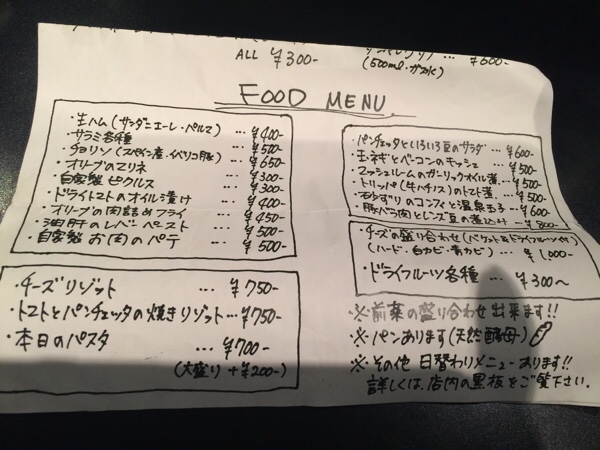 ALL ¥300-
(500ml・ガス水) ¥600-
FOOD MENU
・生ハム(サンダニエーレ・パルマ) … ¥400-
・サラミ各種 … ¥500-
・チョリソ(スペイン産・イベリコ豚) … ¥650
・オリーブのマリネ … ¥300
・自家製ピクルス … ¥300-
・ドライトマトのオイル漬け … ¥400-
・オリーブの肉詰めフライ … ¥450-
のレバーペースト … ¥500-
・自家製お肉のパテ … ¥500-
・チーズリゾット … ¥750-
・トマトとパンチェッタの焼きリゾット … ¥750-
・本日のパスタ … ¥700-
(大盛り +¥200-)
・パンチェッタといろいろ豆のサラダ … ¥600-
・玉ネギとベーコンのキッシュ … ¥500
・マッシュルームのガーリックオイル煮 … ¥500-
・トリッパ(牛ハチノス)のトマト煮 … ¥500-
・砂ずりのコンフィと温泉玉子 … ¥600
・豚バラ肉とレンズ豆の煮込み … ¥800-
・チーズの盛り合わせ(バケット&ドライフルーツ付)
(ハード・白カビ・青カビ) … ¥1,000-
・ドライフルーツ各種 … ¥300〜
※前菜の盛り合わせ出来ます!!
※パンあります(天然酵母)
※その他 日替わりメニューあります!!
詳しくは、店内の黒板をご覧下さい。